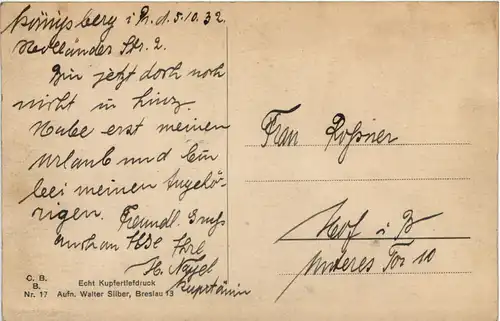 Königsberg i. Pr. d. 5.10.32.
Str. 2.
Bin jetzt doch noch
nicht in Linz.
Habe erst meinen
Urlaub und bin
bei meinen Angehö-
rigen. Freundl. Gruß
auch an Ilse Ihre
H. Nagel
Frau Roßner
Hof i. B.
Unteres Tor 10
C. B.
B.
Nr. 17
Echt Kupfertiefdruck
Aufn. Walter Silber, Breslau 13